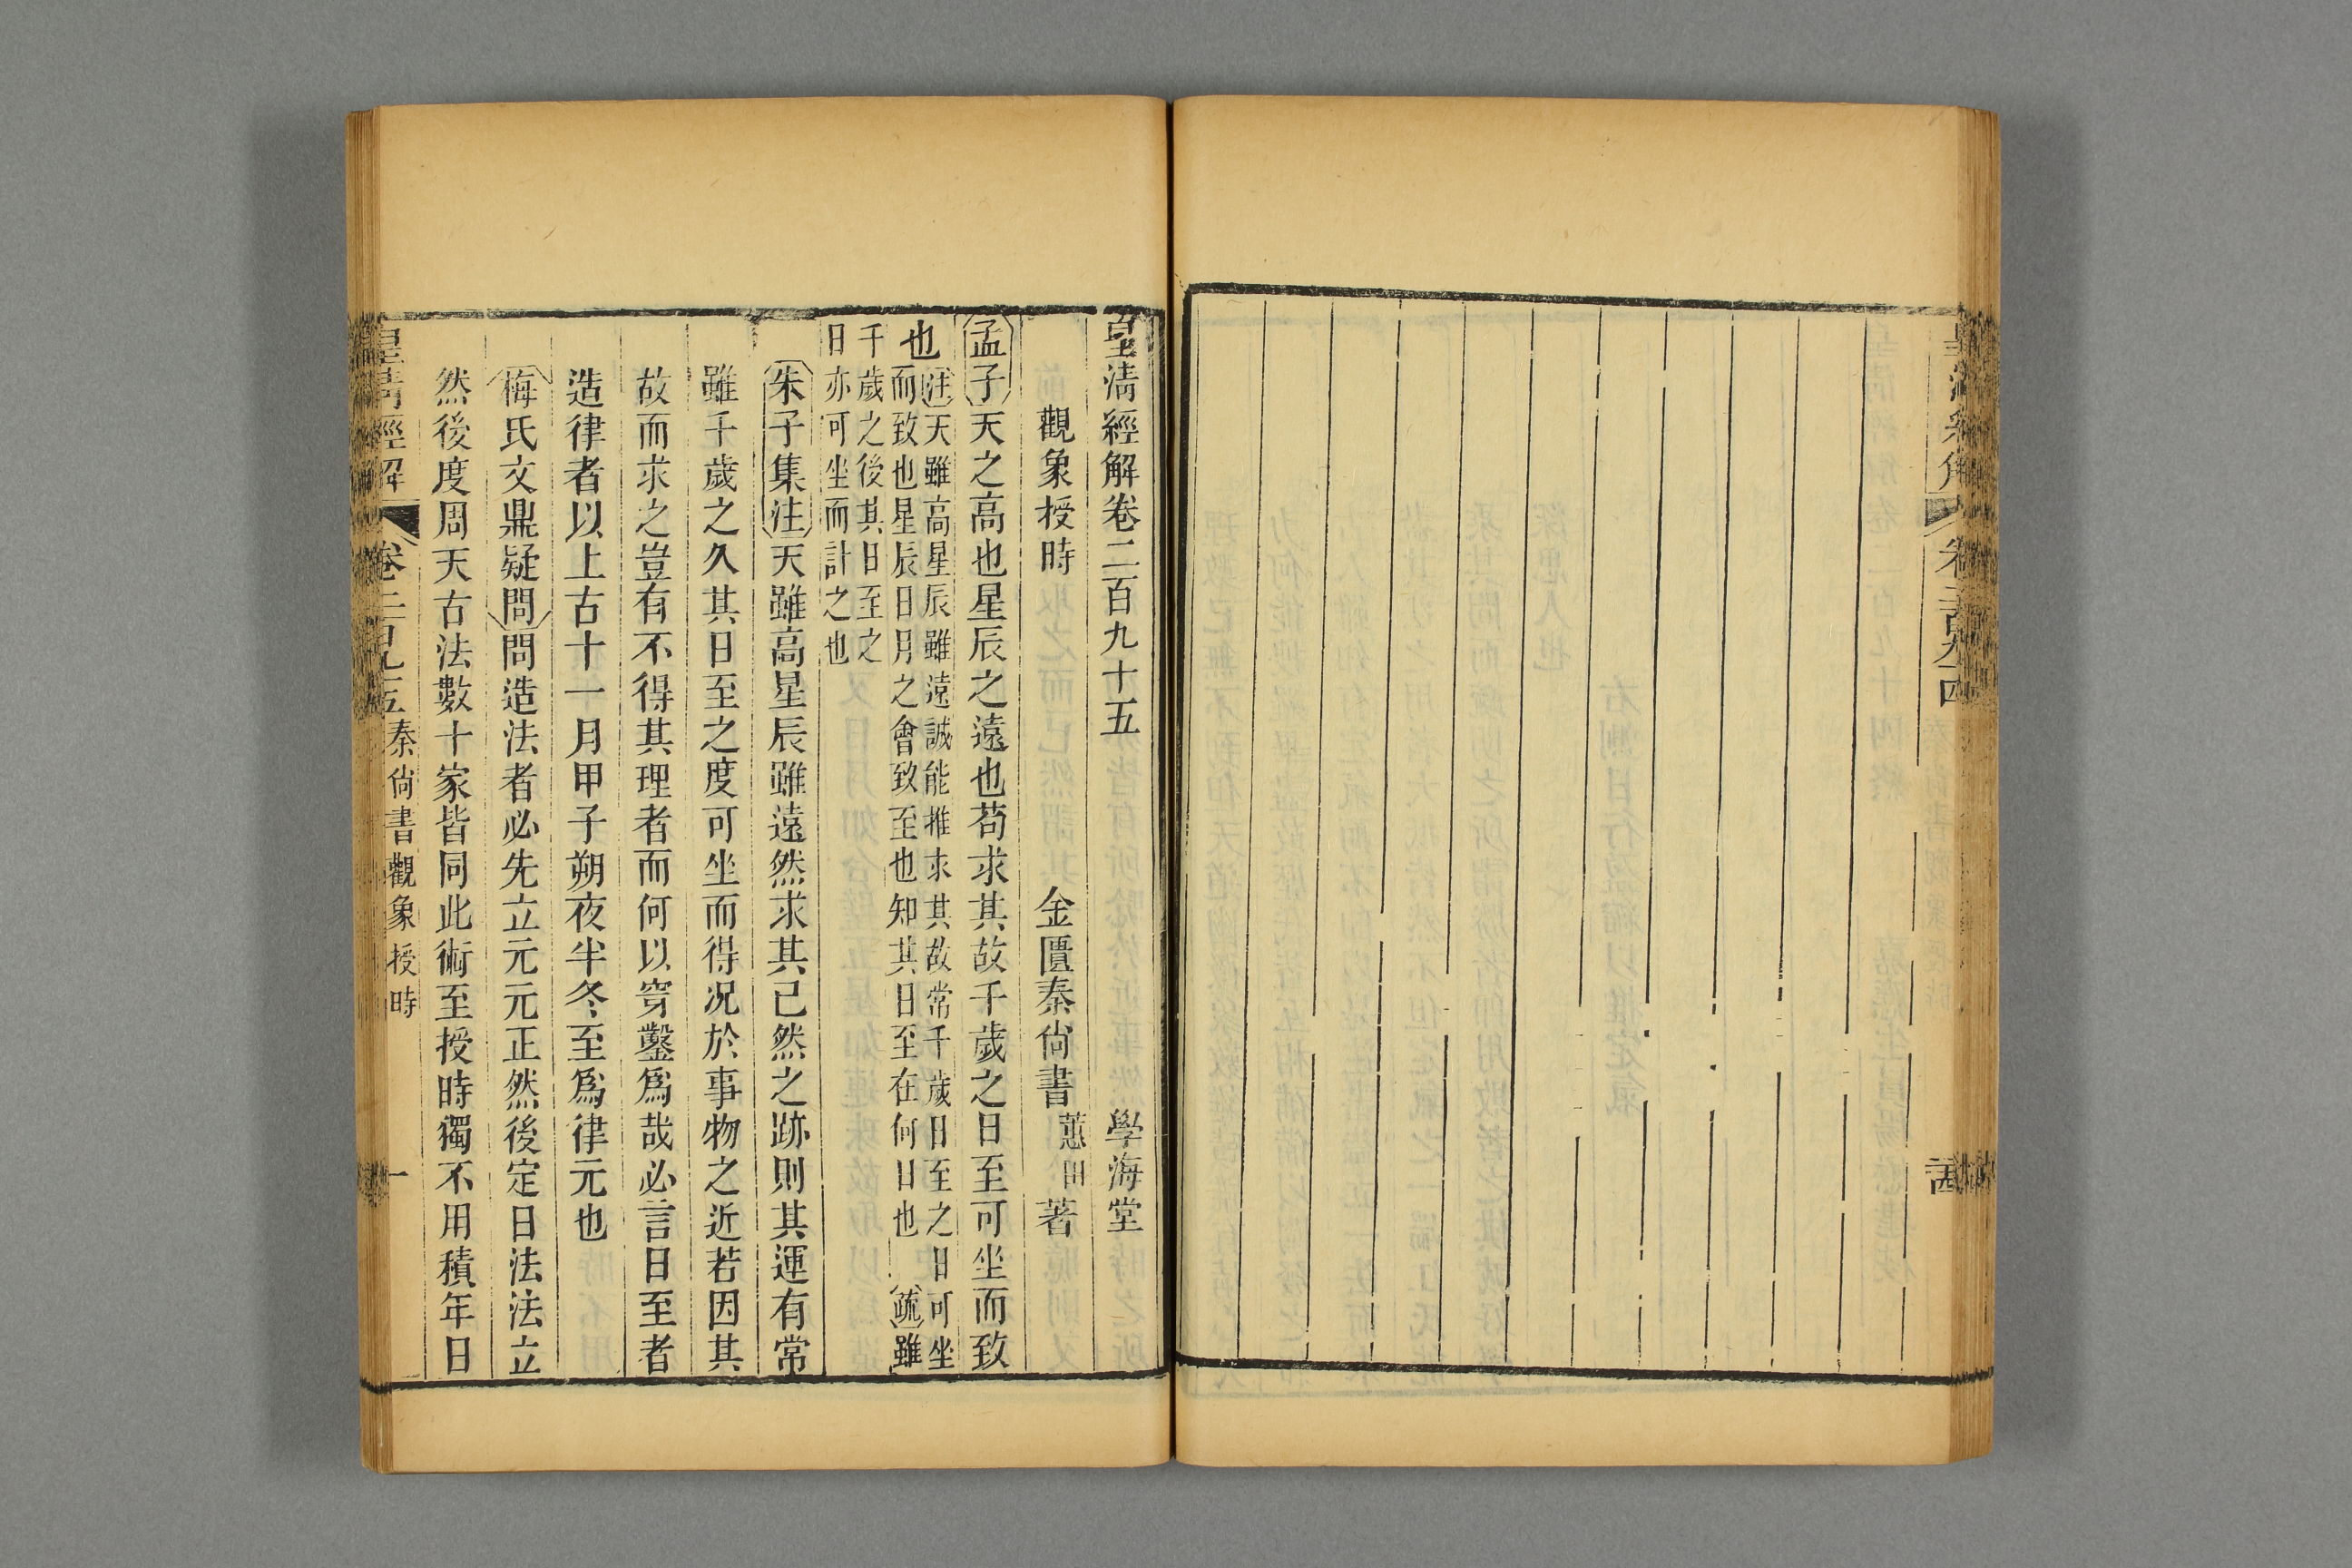 皇清經解卷二百九十五 學海堂
觀象授時 金匱秦尙書蕙田著
孟子天之高也星辰之遠也苟求其故千歲之日至可坐而致
也注天雖高星辰雖遠誠能推求其故常千歲日至之日可坐
而致也星辰日月之會致至也知其日至在何日也 疏雖
千歲之後其日至之
日亦可坐而計之也
朱子集注天雖高星辰雖遠然求其已然之跡則其運有常
雖千歲之久其日至之度可坐而得况於事物之近若因其
故而求之豈有不得其理者而何以穿鑿爲哉必言日至者
造律者以上古十一月甲子朔夜半冬至爲律元也
梅氏文鼎疑問問造法者必先立元元正然後定日法法立
然後度周天古法數十家皆同此術至授時獨不用積年日
皇清經解 卷二百九五 秦尙書觀象授時 一